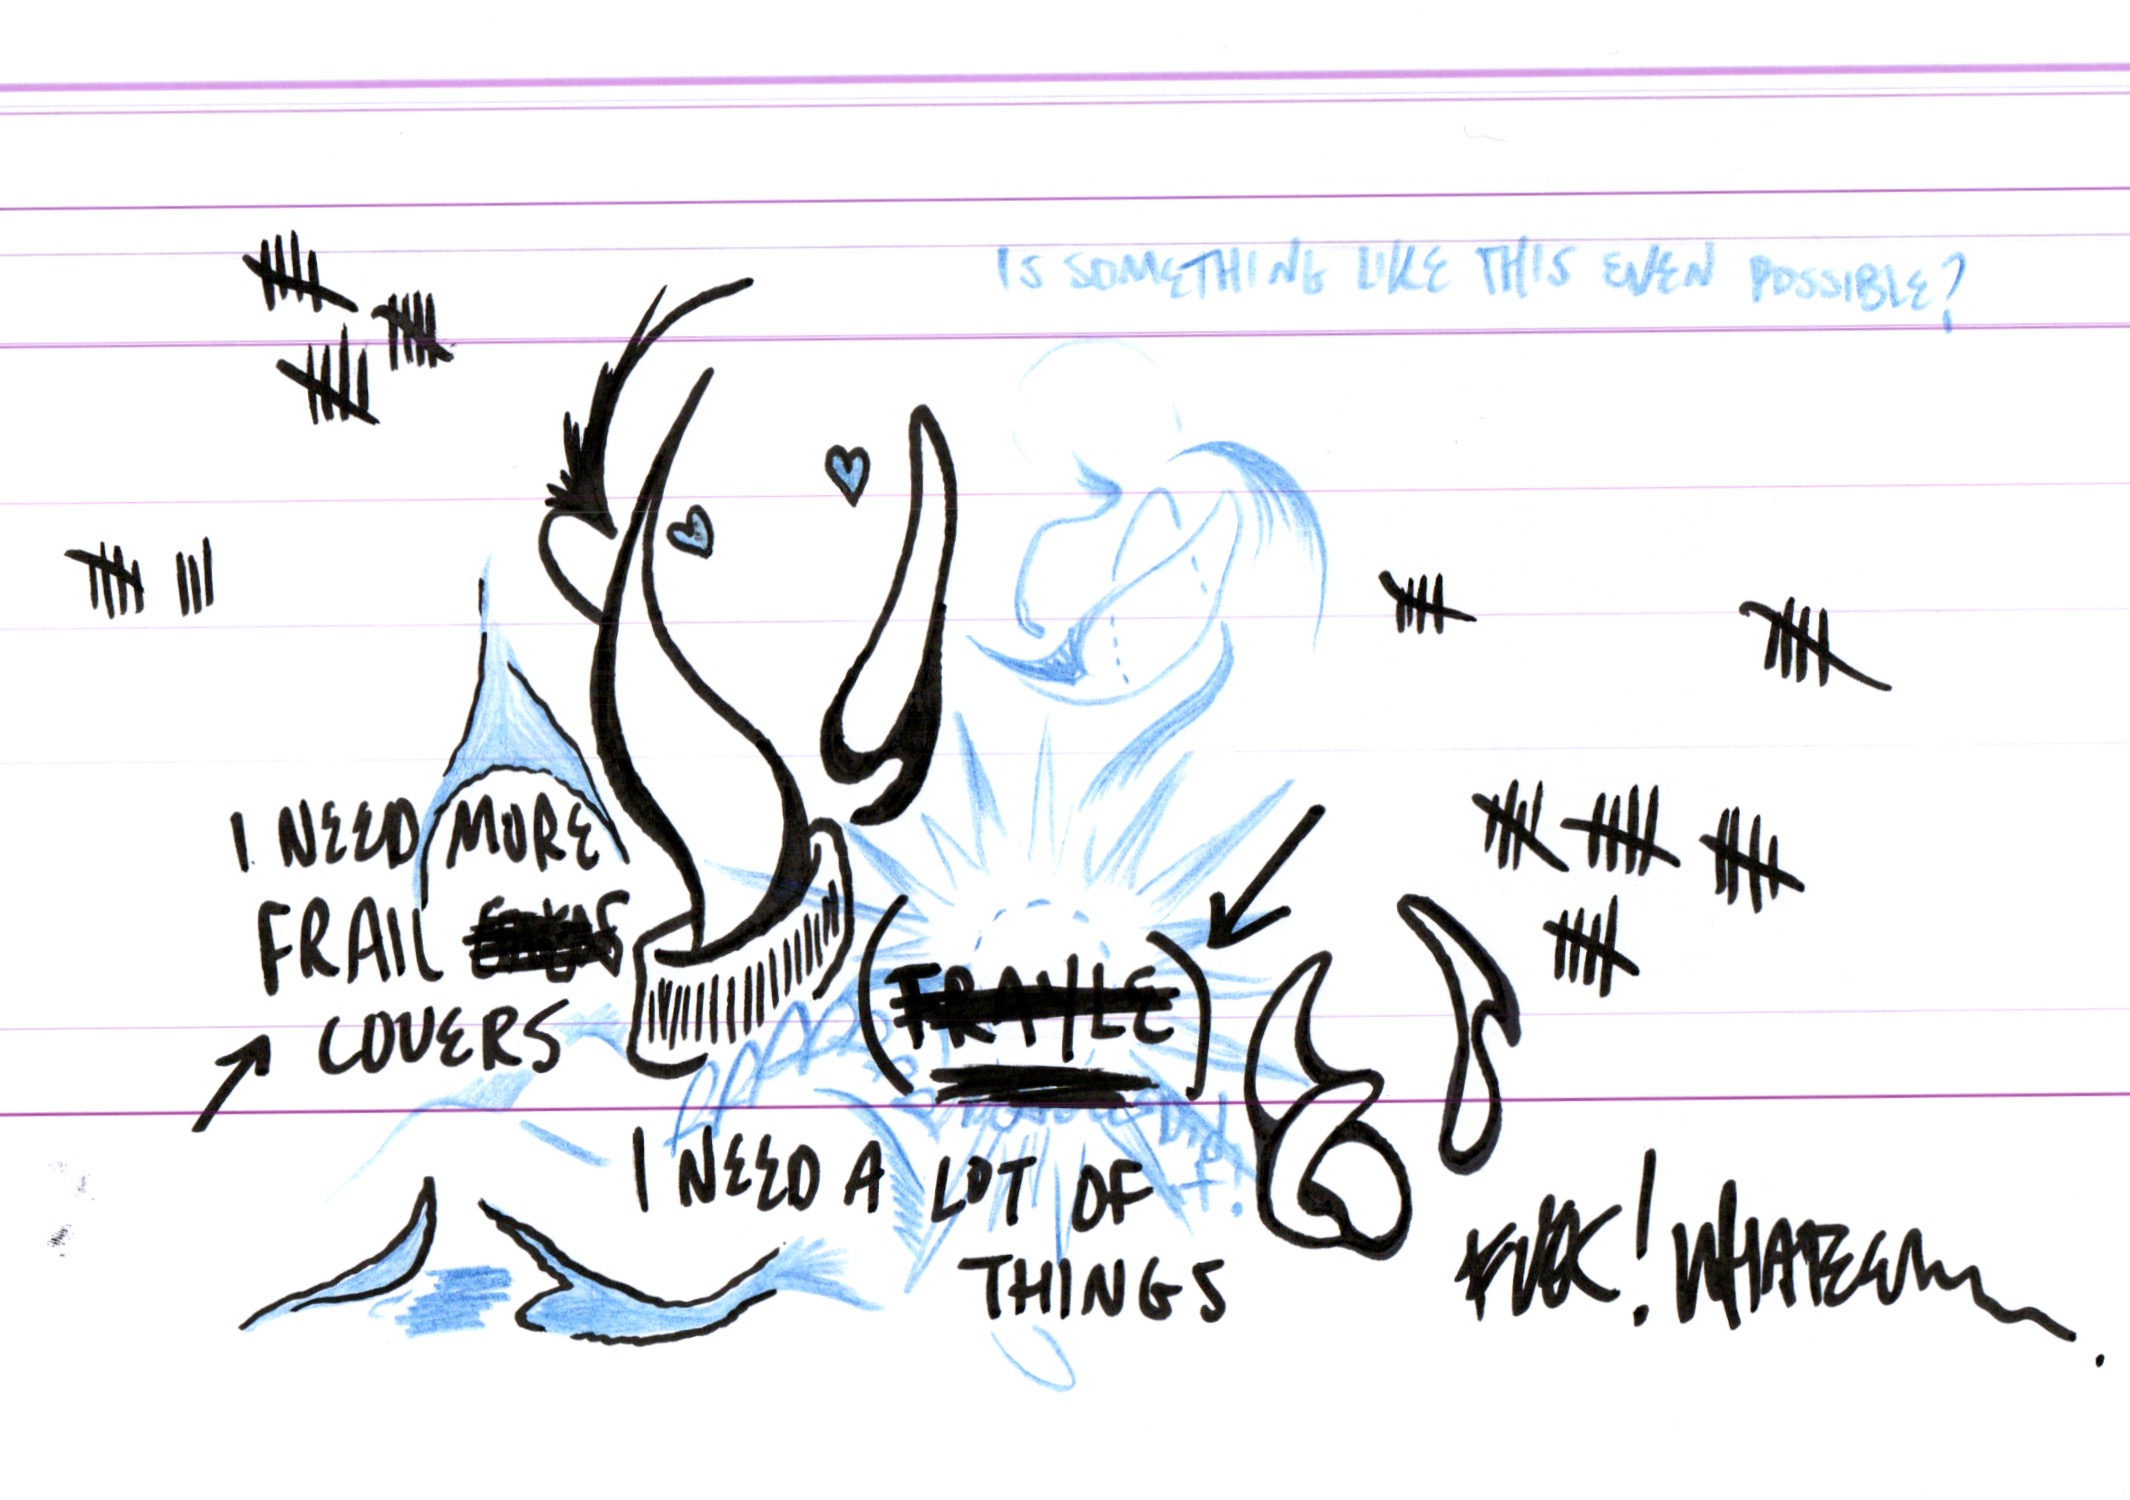 IS SOMETHING LIKE THIS EVEN POSSIBLE?
I NEED MORE
FRAIL
COVERS
(FRAYLE)
I NEED A LOT OF
THINGS
FUCK! WHATEVER.